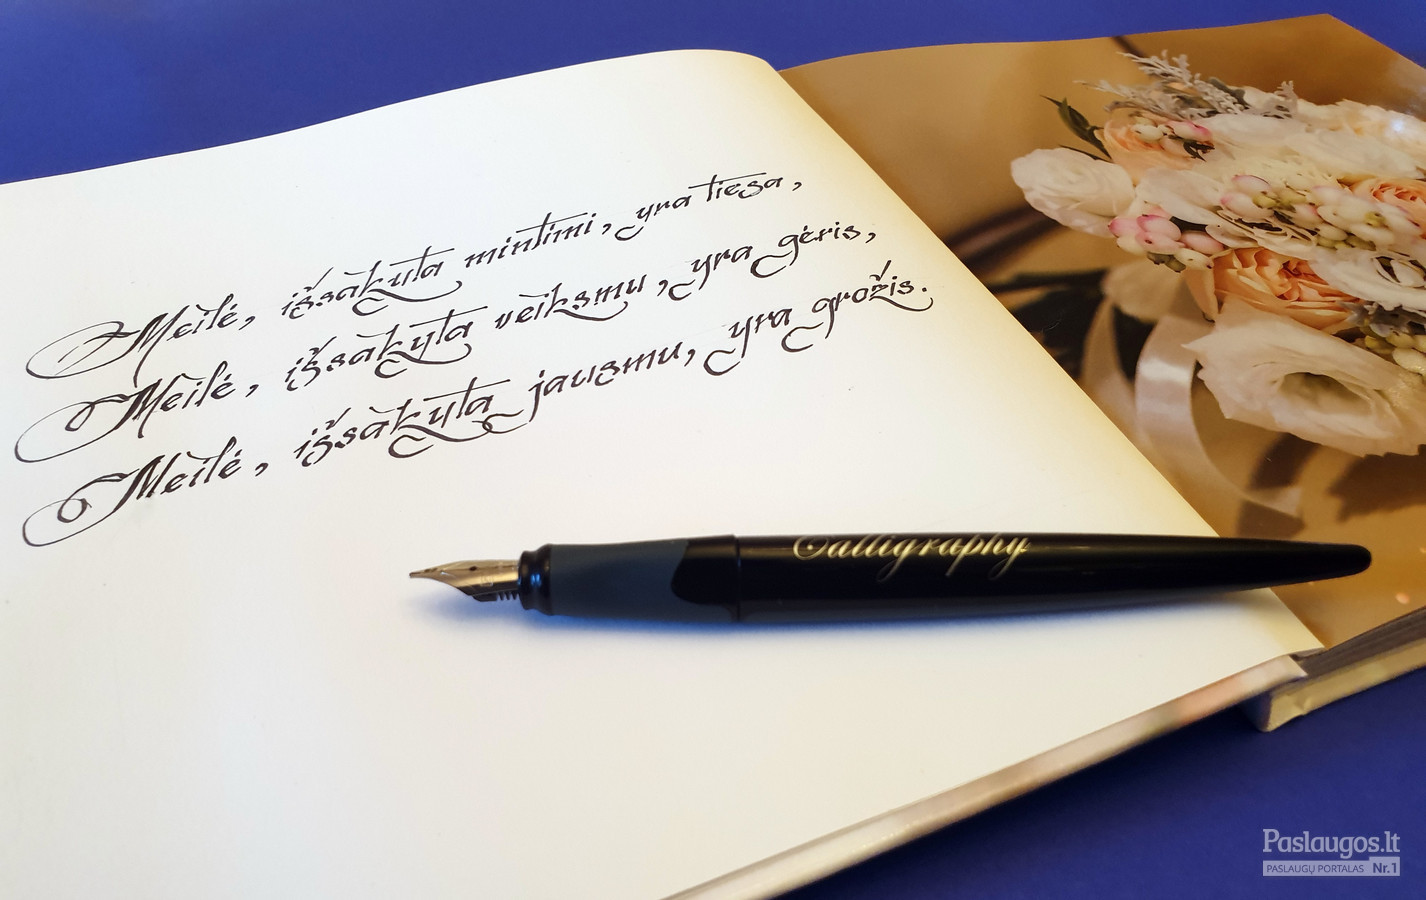 Meilė, išsakyta mintimi, yra tiesa,
Meilė, išsakyta veiksmu, yra gėris,
Meilė, išsakyta jausmu, yra grožis.
Calligraphy
Paslaugos.lt
PASLAUGŲ PORTALAS Nr.1